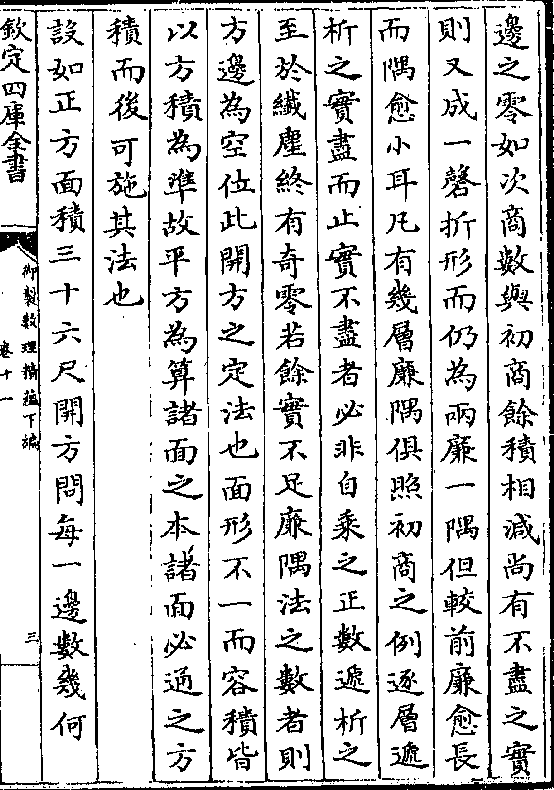 邊之零如次商數與初商餘積相減尚有不盡之實
則又成一磬折形而仍為兩廉一隅但較前廉愈長
而隅愈小耳凡有幾層廉隅俱照初商之例逐層遞
析之實盡而止實不盡者必非自乘之正數遞析之
至於纎塵終有奇零若餘實不足廉隅法之數者則
方邊為空位此開方之定法也面形不一而容積皆
以方積為準故平方為算諸面之本諸面必通之方
積而後可施其法也
設如正方面積三十六尺開方問每一邊數幾何
欽定四庫全書
御製數理精蘊下編
卷十一
三